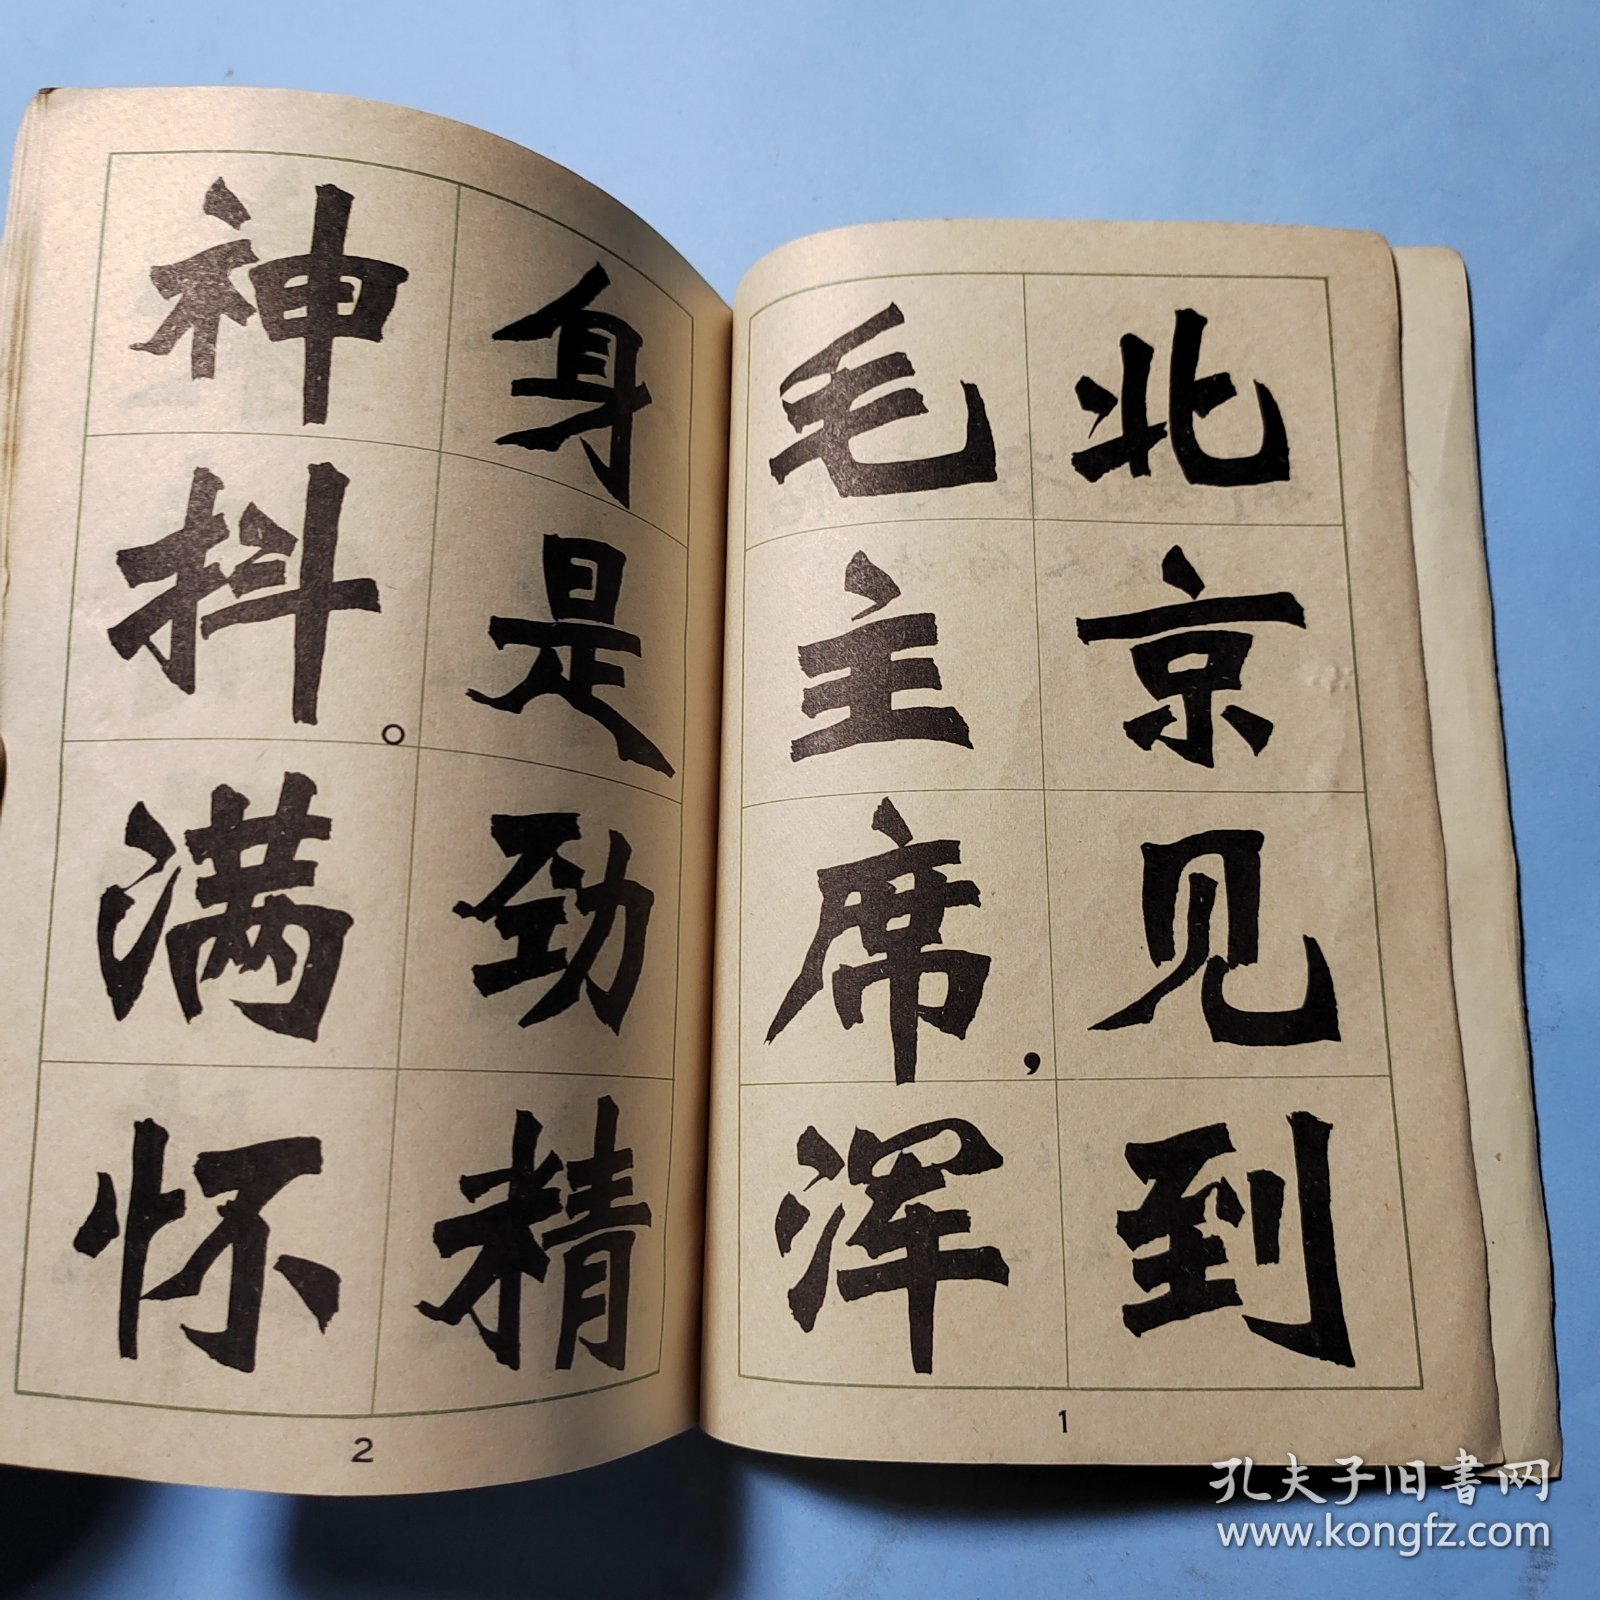 北京见到
毛主席，浑
1
身是劲精
神抖。满怀
2
孔夫子旧书网
www.kongfz.com